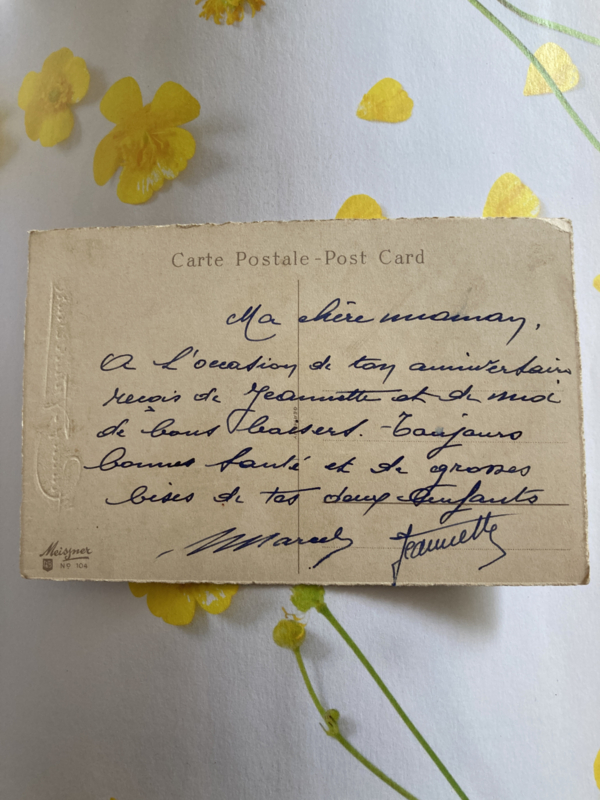 Carte Postale - Post Card
Ma chère maman,
A l'occasion de ton anniversaire
reçois de Jeannette et de moi
de bons baisers. Toujours
bonnes santé et de grosses
bises de tes deux Enfants
Marcel Jeannette
Meissner
Nº 106